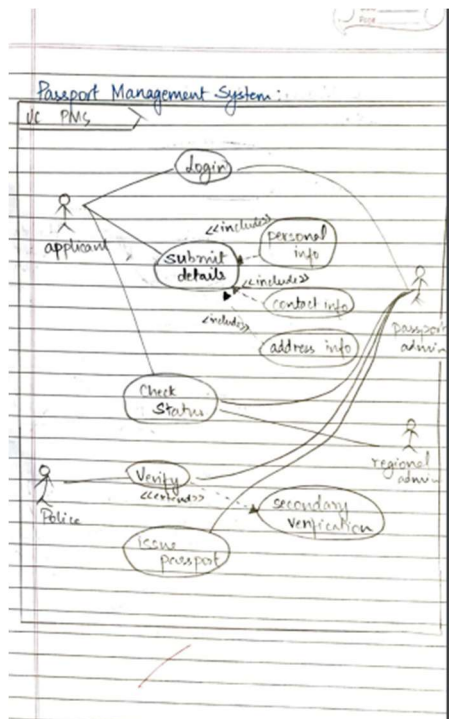 Page
Passport Management System:
UC PMS
Login
applicant
<<include>>
personal
info
submit
details
<<include>>
contact info
<<include>>
address info
passport
admin
Check
Status
regional
admin
Verify
<<extend>>
Police
secondary
verification
issue
passport